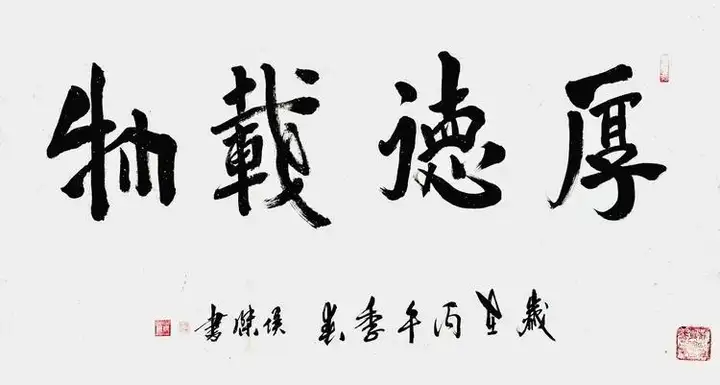 厚德載物
歲在丙午季春 侯陳書